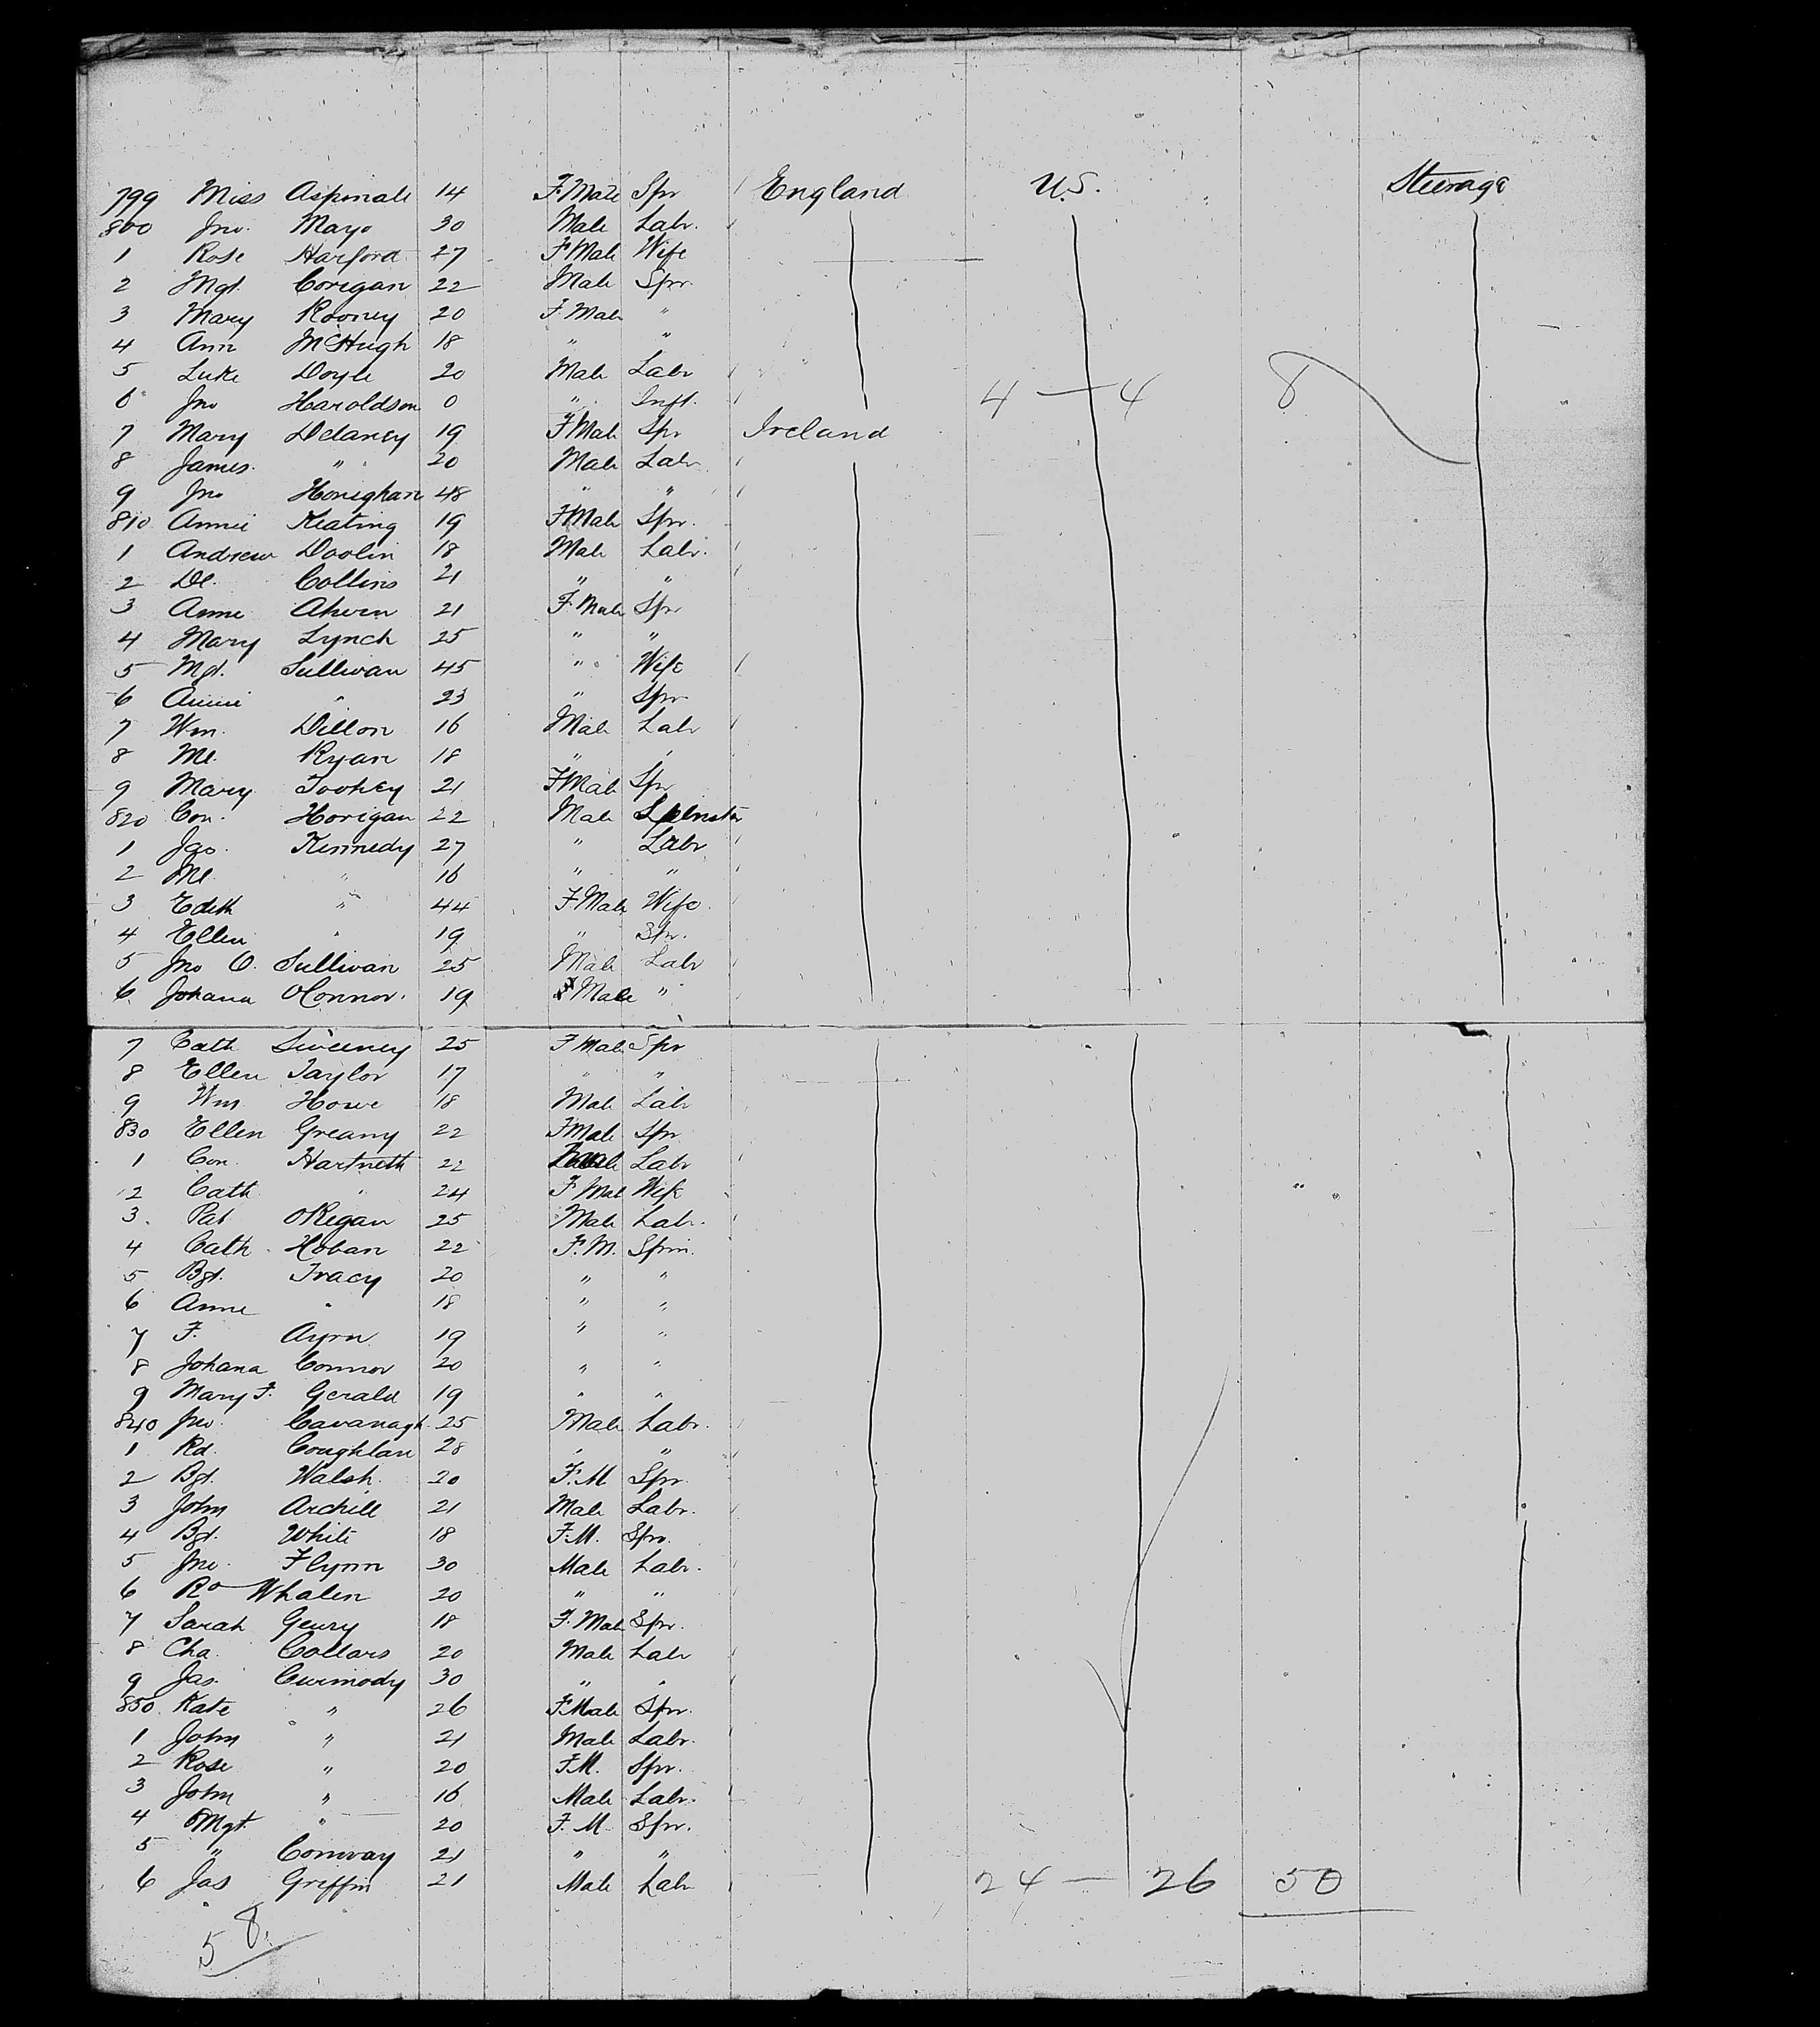 799 Miss Aspinall 14 F.Male Spr England U.S. Steerage
800 Jno. Mayo 30 Male Labr.
1 Rose Harford 27 F Male Wife
2 Mgt. Corigan 22 Male Spr.
3 Mary Rooney 20 F.Male "
4 Ann McHugh 18 " "
5 Luke Doyle 20 Male Labr
6 Jno Haroldson 0 " Inft. 4 — 4 8
7 Mary Delaney 19 F Male Spr Ireland
8 James " 20 Male Labr
9 Jno Honighan 48 " "
810 Annie Keating 19 F Male Spr.
1 Andrew Doolin 18 Male Labr.
2 Dl. Collins 21 " "
3 Anne Ahern 21 F. Male Spr
4 Mary Lynch 25 " "
5 Mgt. Sullivan 45 " Wife
6 Annie " 23 " Spr
7 Wm. Dillon 16 Male Labr
8 Ml. Ryan 18 " "
9 Mary Toohey 21 F Male Spr
820 Con. Horigan 22 Male Spinster
1 Jas. Kennedy 27 " Labr
2 Ml. " 16 " "
3 Edith " 44 F.Male Wife
4 Ellen " 19 " Spr.
5 Jno O. Sullivan 25 Male Labr
6 Johana OConnor. 19 F Male "
7 Cath Sweeney 25 F Male Spr
8 Ellen Taylor 17 " "
9 Wm Howe 18 Male Labr
830 Ellen Greany 22 F Male Spr
1 Con. Hartnett 22 Labr
2 Cath " 24 F Mal Wife
3. Pat OKegan 25 Male Labr.
4 Cath Hoban 22 F. M. Spin.
5 Bgt. Tracy 20 " "
6 Anne " 18 " "
7 F. Ayrn 19 " "
8 Johana Connor 20 " "
9 Mary F. Gerald 19 " "
840 Jno. Cavanagh 25 Male Labr.
1 Rd. Coughlan 28 " "
2 Bgt. Walsh 20 F. M Spr.
3 John Archill 21 Male Labr.
4 Bgt. White 18 F. M. Spr.
5 Jno. Flynn 30 Male Labr.
6 Ro Whalen 20 " "
7 Sarah Geury 18 F. Male Spr.
8 Cha. Collars 20 Male Labr
9 Jas. Curmody 30 " "
850. Kate " 26 F.Male Spr.
1 John " 21 Male Labr.
2 Rose " 20 F.M. Spr.
3 John " 16 Male Labr.
4 Mgt. " 20 F. M. Spr.
5 " Conway 21 " "
6 Jas Griffin 21 Male Labr 24 — 26 50
58